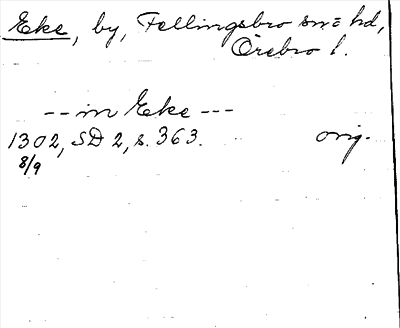 Eke, by, Fellingsbro sn = hd,
Örebro l.
-- in Eke ---
1302, SD 2, s. 363. orig.
8/9